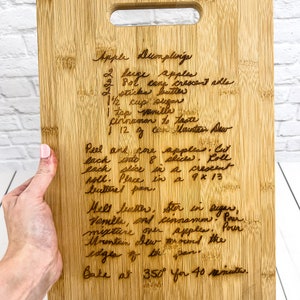 Apple Dumplings
2 large apples
2 Pok cans crescent rolls
2 sticks butter
1 1/2 cup sugar
1 tsp vanilla
Cinnamon to taste
1 12 oz can Mountain Dew
Peel and core apples. Cut
each into 8 slices. Roll
each slice in a crescent
roll. Place in a 9 x 13
buttered pan.
Melt butter, stir in sugar,
vanilla and cinnamon. Pour
mixture over apples. Pour
Mountain Dew around the
edges of the pan.
Bake at 350° for 40 minutes.